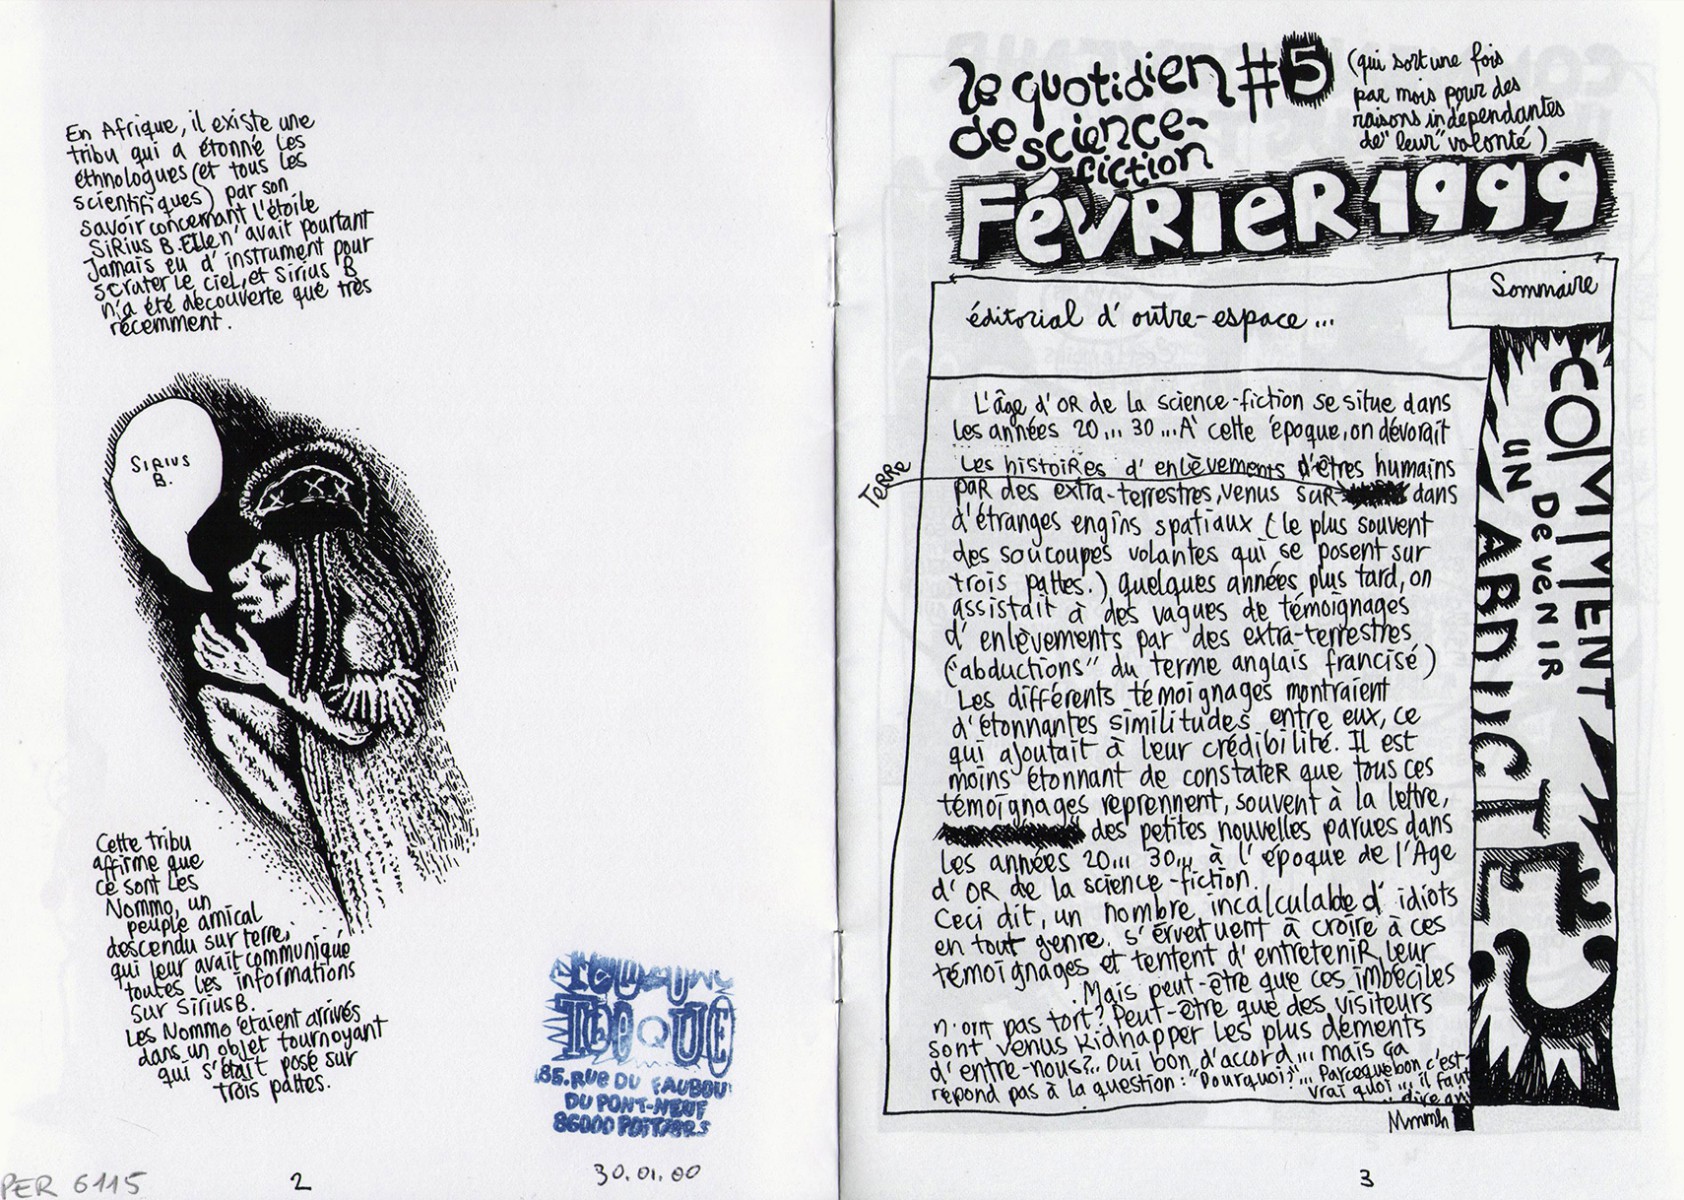 En Afrique, il existe une
tribu qui a étonné les
éthnologues (et tous les
scientifiques) par son
savoir concernant l'étoile
Sirius B. Elle n'avait pourtant
Jamais eu d'instrument pour
scruter le ciel, et Sirius B
n'a été découverte que très
récemment.
SIRIUS
B.
Cette tribu
affirme que
ce sont les
Nommo, un
peuple amical
descendu sur terre,
qui leur avait communiqué
toutes les informations
sur Sirius B.
Les Nommo étaient arrivés
dans un objet tournoyant
qui s'était posé sur
trois pattes.
85. RUE DU FAUBOU
DU PONT-NEUF
86000 POITIERS
PER 6115
2
30.01.00
le quotidien #5
de science-
fiction
(qui sort une fois
par mois pour des
raisons indépendantes
de "leur" volonté)
FÉVRIER 1999
Sommaire
éditorial d'outre-espace...
L'âge d'OR de la science-fiction se situe dans
les années 20... 30... A cette époque, on dévorait
les histoires d'enlèvements d'êtres humains
par des extra-terrestres, venus sur dans
TERRE
d'étranges engins spatiaux (le plus souvent
des soucoupes volantes qui se posent sur
trois pattes.) quelques années plus tard, on
assistait à des vagues de témoignages
d'enlèvements par des extra-terrestres
("abductions" du terme anglais francisé)
Les différents témoignages montraient
d'étonnantes similitudes entre eux, ce
qui ajoutait à leur crédibilité. Il est
moins étonnant de constater que tous ces
témoignages reprennent, souvent à la lettre,
des petites nouvelles parues dans
les années 20... 30... à l'époque de l'Age
d'OR de la science-fiction.
Ceci dit, un nombre incalculable d'idiots
en tout genre s'évertuent à croire à ces
témoignages et tentent d'entretenir leur
Mais peut-être que ces imbéciles
n'ont pas tort? Peut-être que des visiteurs
sont venus kidnapper les plus déments
d'entre-nous?.. Oui bon d'accord... mais ça
répond pas à la question: "Pourquoi?"... Parceque bon c'est
vrai quoi... il faut
dire
Mmmh
COMMENT
DEVENIR
UN
ABDUCTÉ?
3